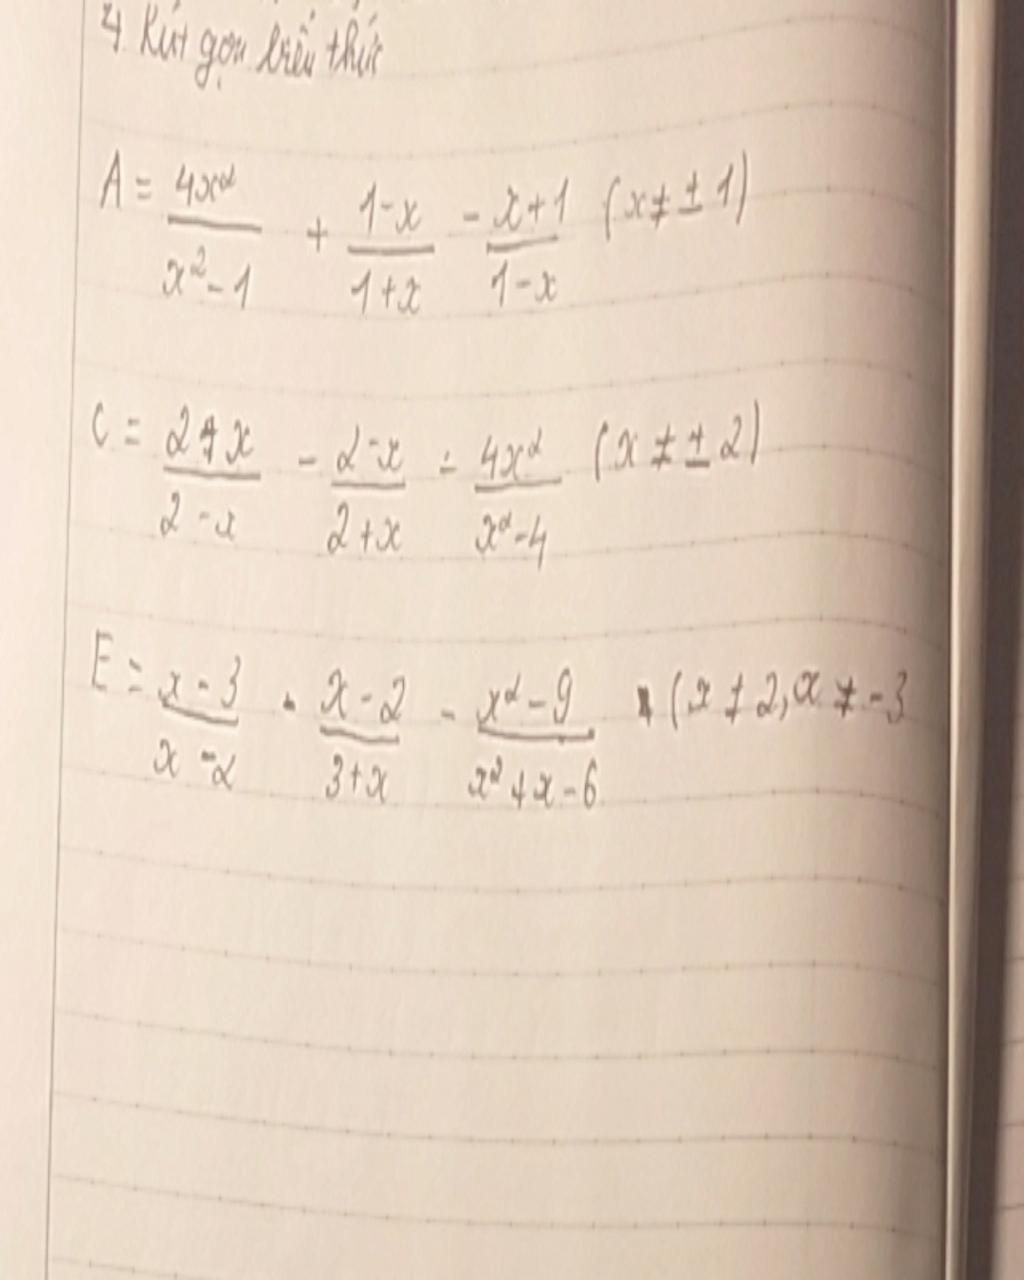 4. Rút gọn biểu thức
A = 4x²/(x² - 1) + (1 - x)/(1 + x) - (x + 1)/(1 - x) (x ≠ ± 1)
C = (2 + x)/(2 - x) - (2 - x)/(2 + x) - 4x²/(x² - 4) (x ≠ ± 2)
E = (x - 3)/(x - 2) - (x - 2)/(3 + x) - (x² - 9)/(x² + x - 6) (x ≠ 2, x ≠ -3